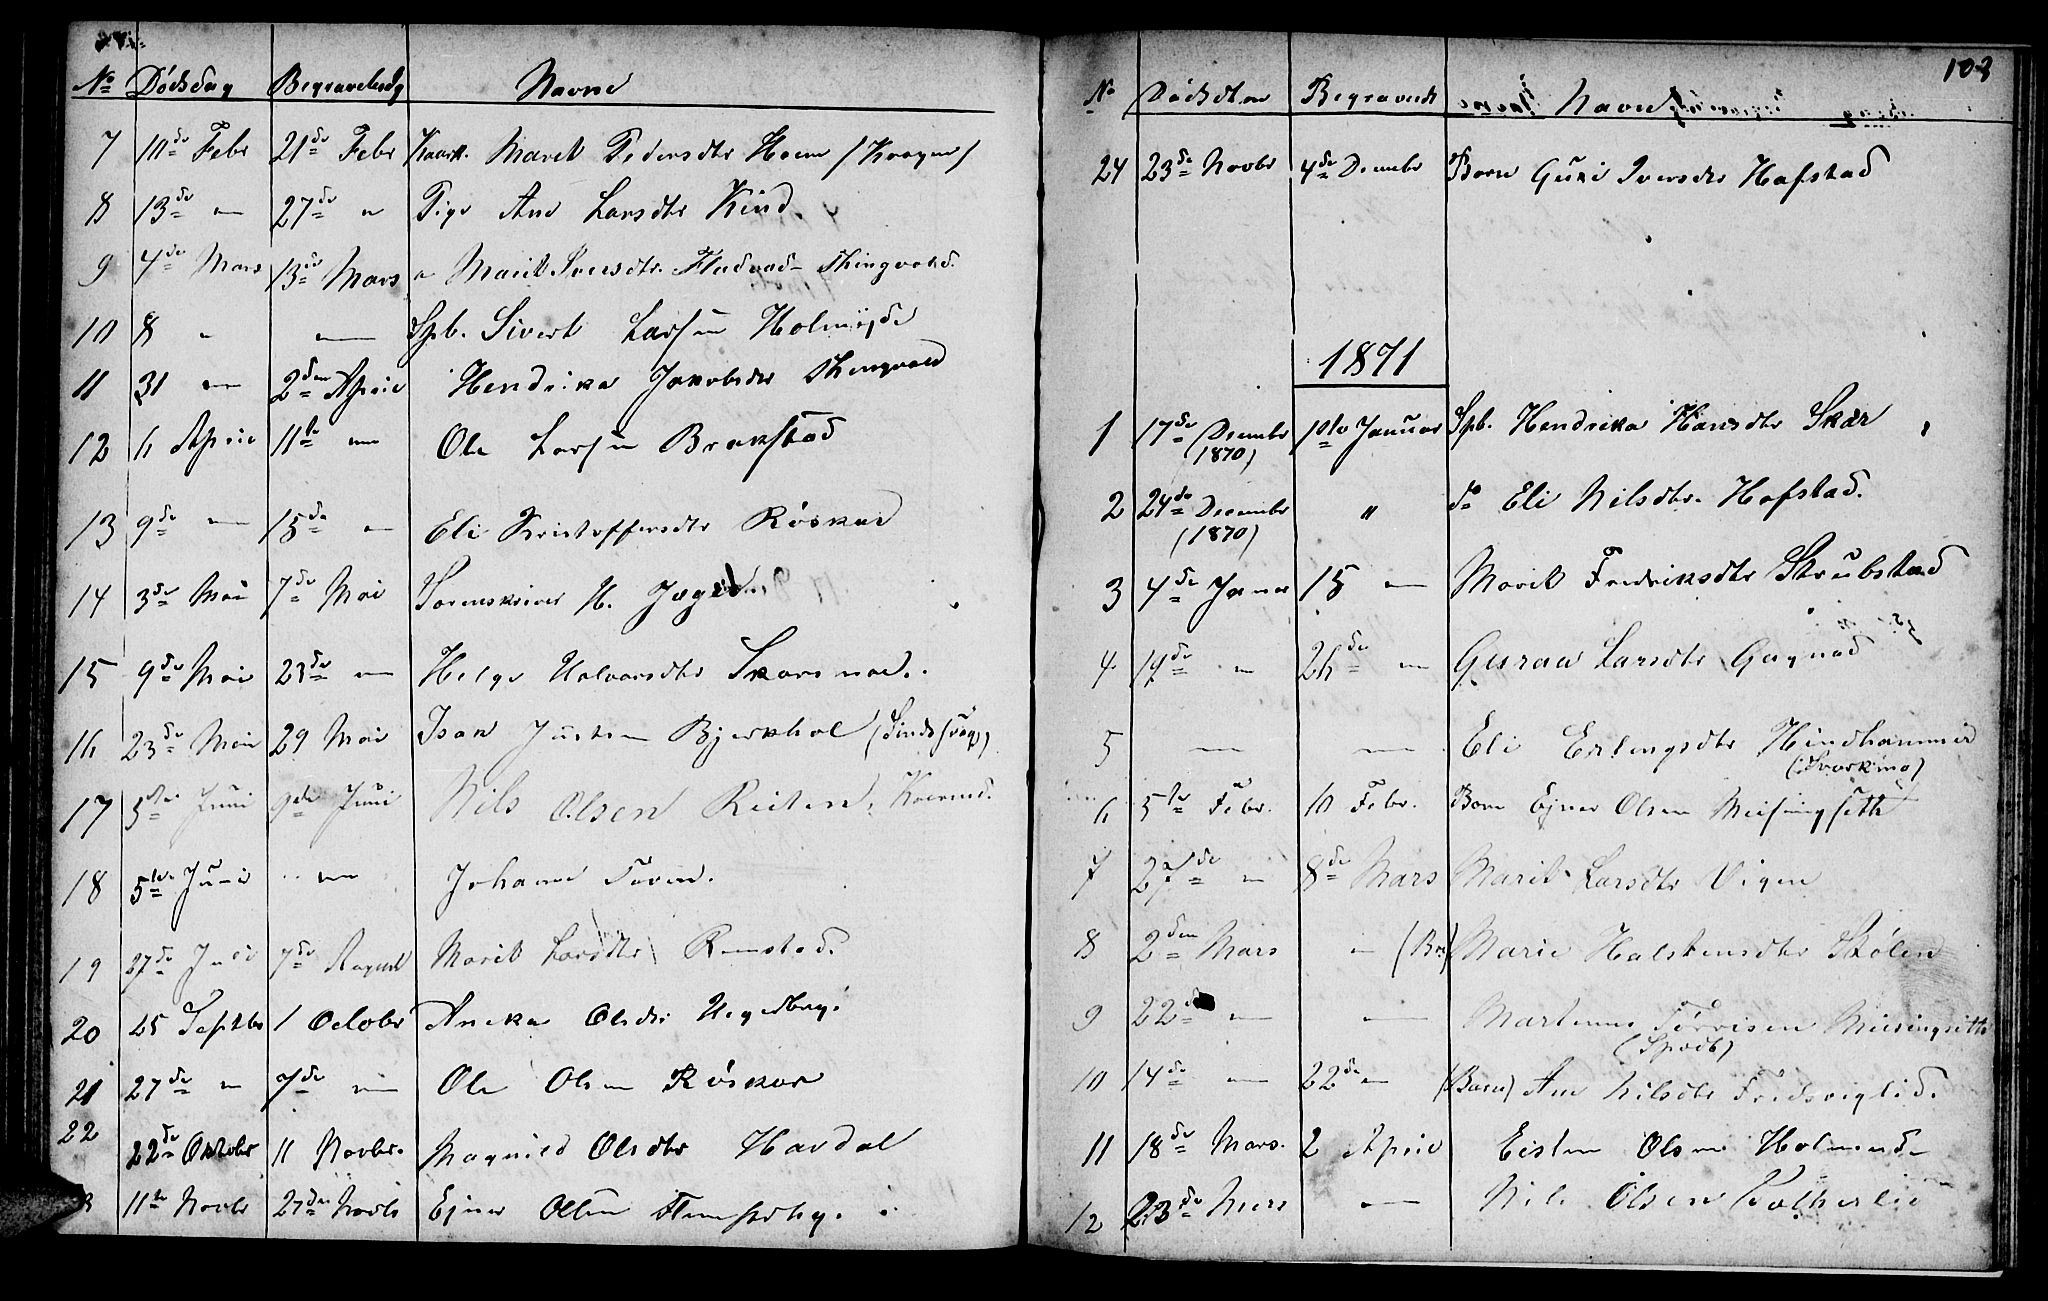 No Dødsdag Begravelsdg Navne
7 10de Febr 21de Febr Kaark. Marit Pedersdtr Hoem /Krogen/
8 13de — 27de " Pige Ane Larsdtr Kind.
9 4de Mars 13de Mars " Marit Iversdtr. Fladvad- Thingvold.
10 8 " — Spb. Sivert Larsen Holmejde
11 31 — 2den April Hendrika Jakobsdtr Thingvold
12 6 April 11te — Ole Larsen Brakstad
13 9de — 15de — Eli Kristoffersdtr Röskar
14 3de Mai 7de Mai Sorenskriver H. Jæger.
15 9de Mai 23de — Helge Halvorsdtr Skarsmoe.
16 23de Mai 29 Mai Isak Bjerkhol
17 5te Juni 9de Juni Nils Olsen Reiten,
18 5te Juni — Johanne
19 27de 7de August Marit Larsdtr Remstad.
20 25 Septbr 1 October Aneka Olsdtr
21 27de " 7de — Ole Olsen Röskar
22 22de Oktober 11 Novbr. Magnild Olsdtr Havdal
11te Novbr 27de Novbr Ejner Olsen
108
No Dödsdtm Begravedt Navne
24 23de Novbr 4de Decembr Barn Guri Iversdtr Hofstad
1871
1 17de Decembr (1870) 1ste Januar Spb. Hendrika Hansdtr Skar
2 24de Decembr (1870) " do Eli Nilsdtr. Hofstad.
3 4de Januar 15 — Marit Fredriksdtr Strubstad
4 19de — 26de — Guraa Larsdtr Gagnad
5 — — Eli Erlingsdtr Hindhammer
(Storkmo)
6 5te Febr. 10 Febr. Barn Ejner Olsen Meisingseth
7 27de — 8de Mars Marit Larsdtr Vigen
8 2den Mars — (Brn) Marie Halstensdtr Stölen
9 22de — — Martinus Torrisen Meisingseth
(Spædb)
10 14de — 22de — (Barn) Ane Nilsdtr Fredsviglid.
11 18de Mars. 2 April Eisten Olsen
12 23de Mars — Nils Olsen